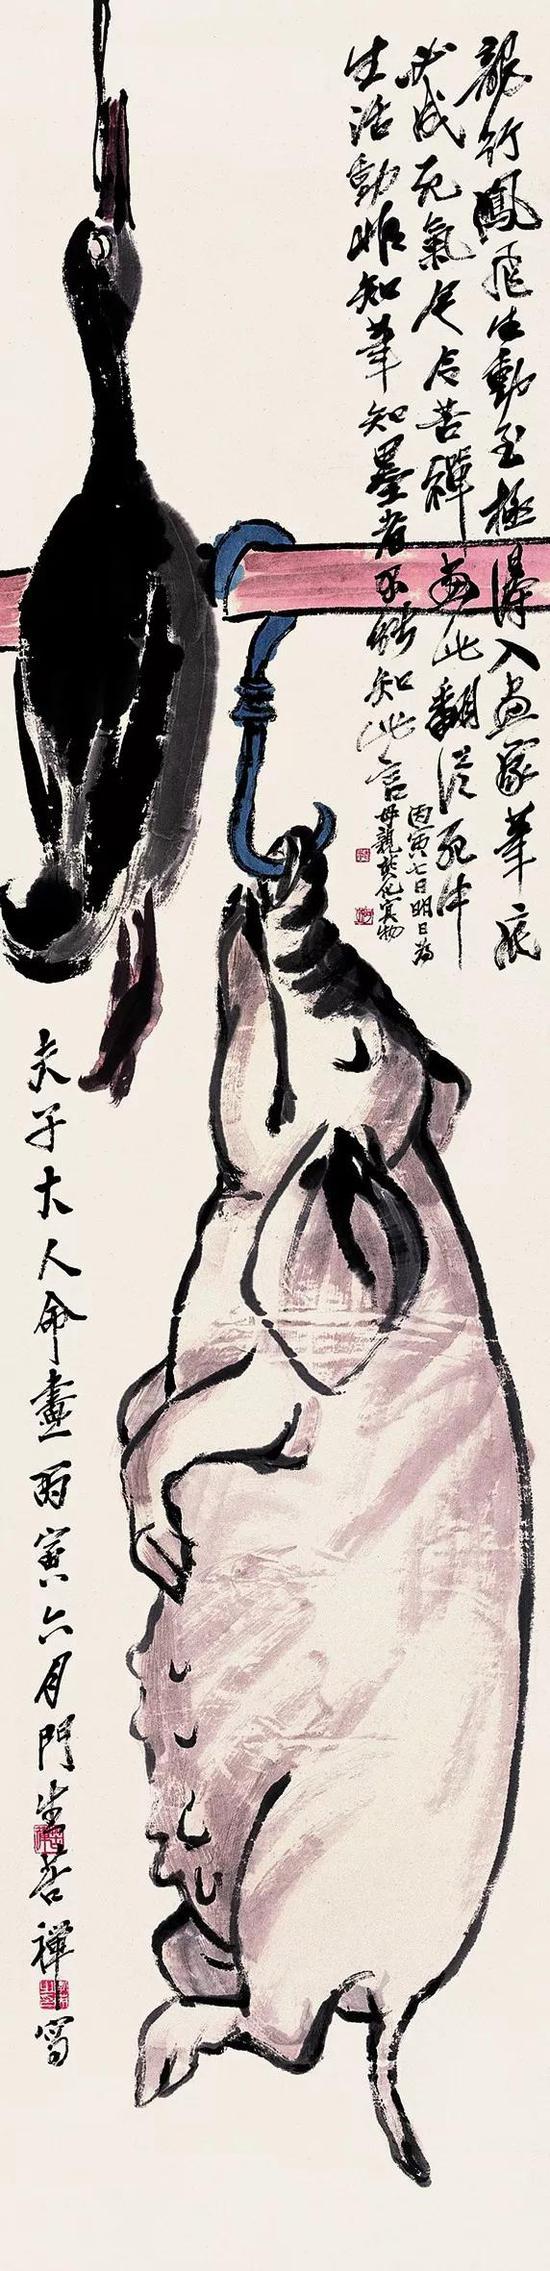 龍行鳳飛生動至極得入畫家筆底
必成死氣今令苦禪畫此翻從死中
生活動非知筆知墨者不能知此言
丙寅七日明日為
母親焚化冥物
夫子大人命畫丙寅六月門生苦禪寫